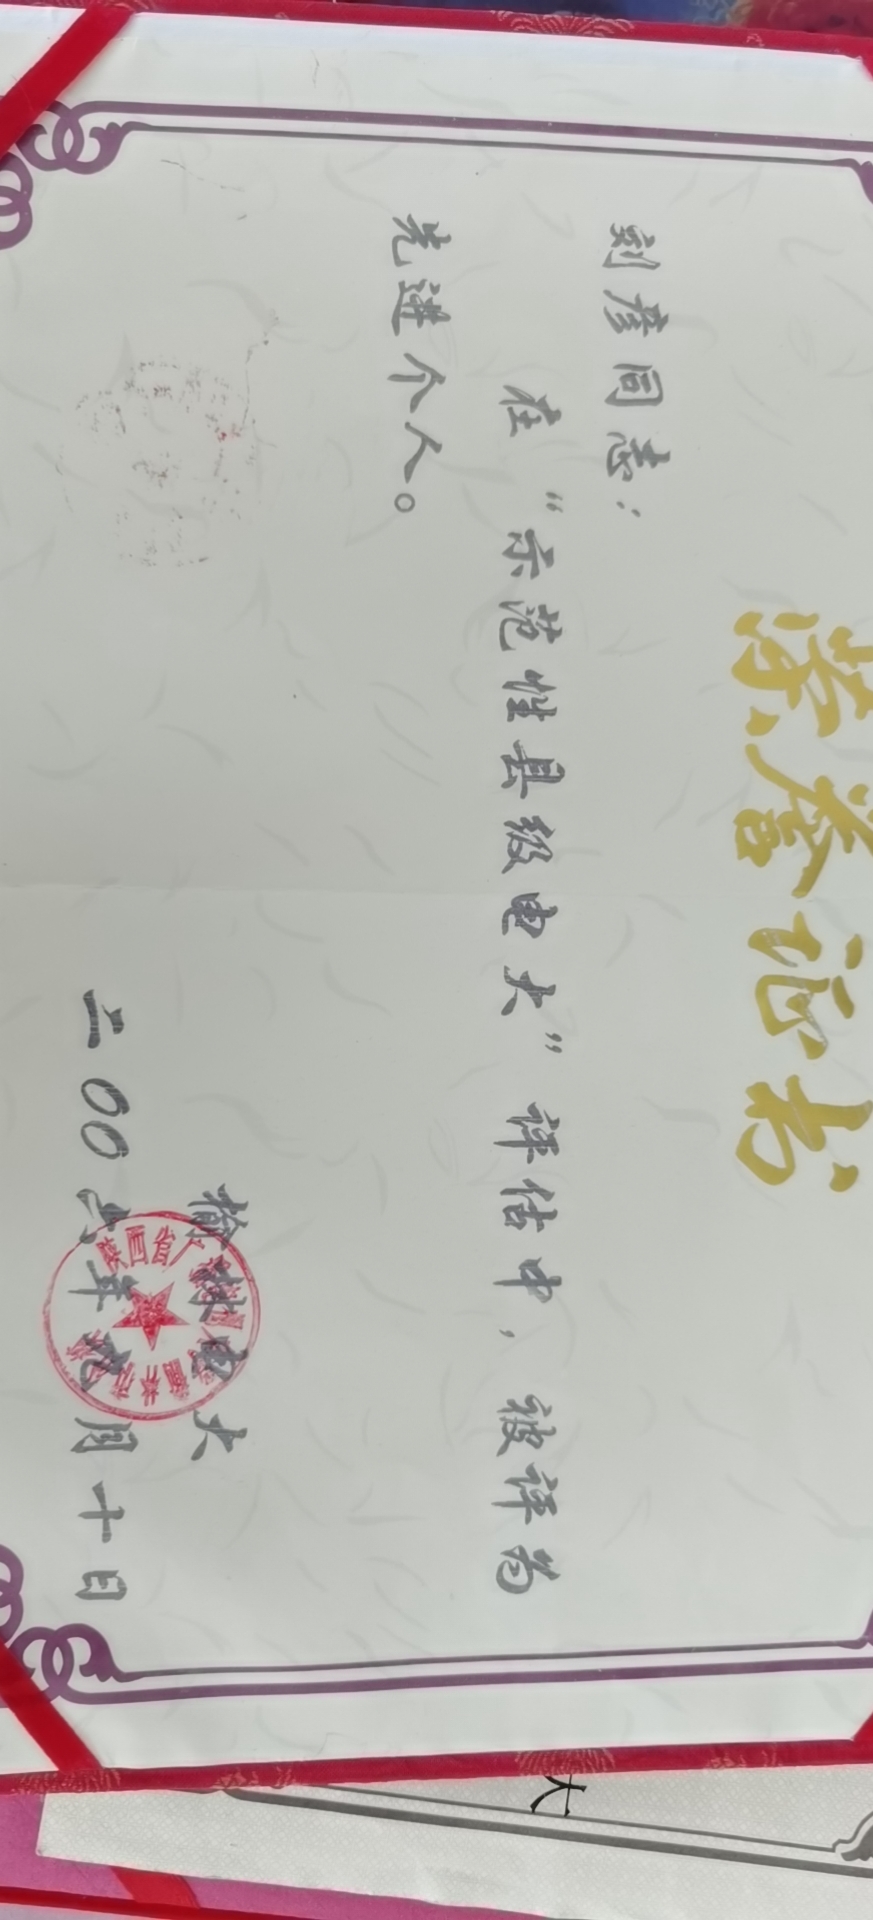 荣誉证书
刘彦同志：
在“示范性县级电大”评估中，被评为
先进个人。
榆林电大
二00六年九月十日
陕西省广
大